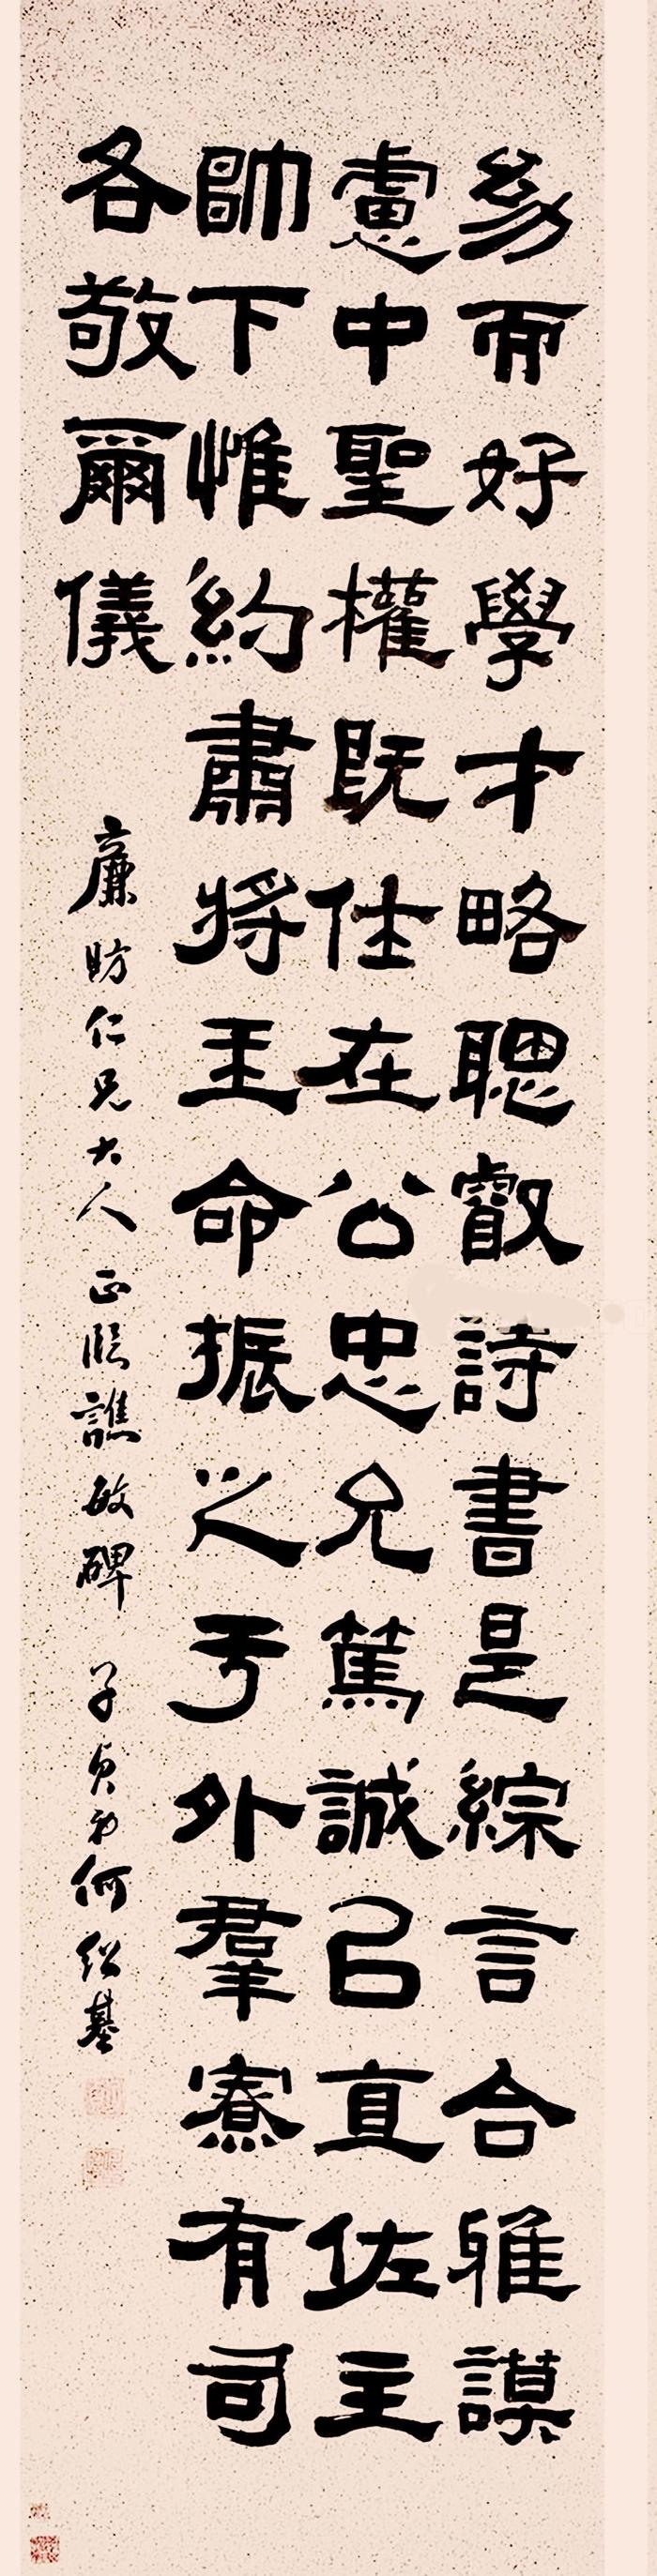 幼而好學才略聰叡詩書是綜言合雅謨
慮中聖權既仕在公忠允篤誠㠯直佐主
帥下惟約肅將王命振之于外羣寮有司
各敬爾儀
廉昉仁兄大人正臨譙敏碑 子貞弟何紹基